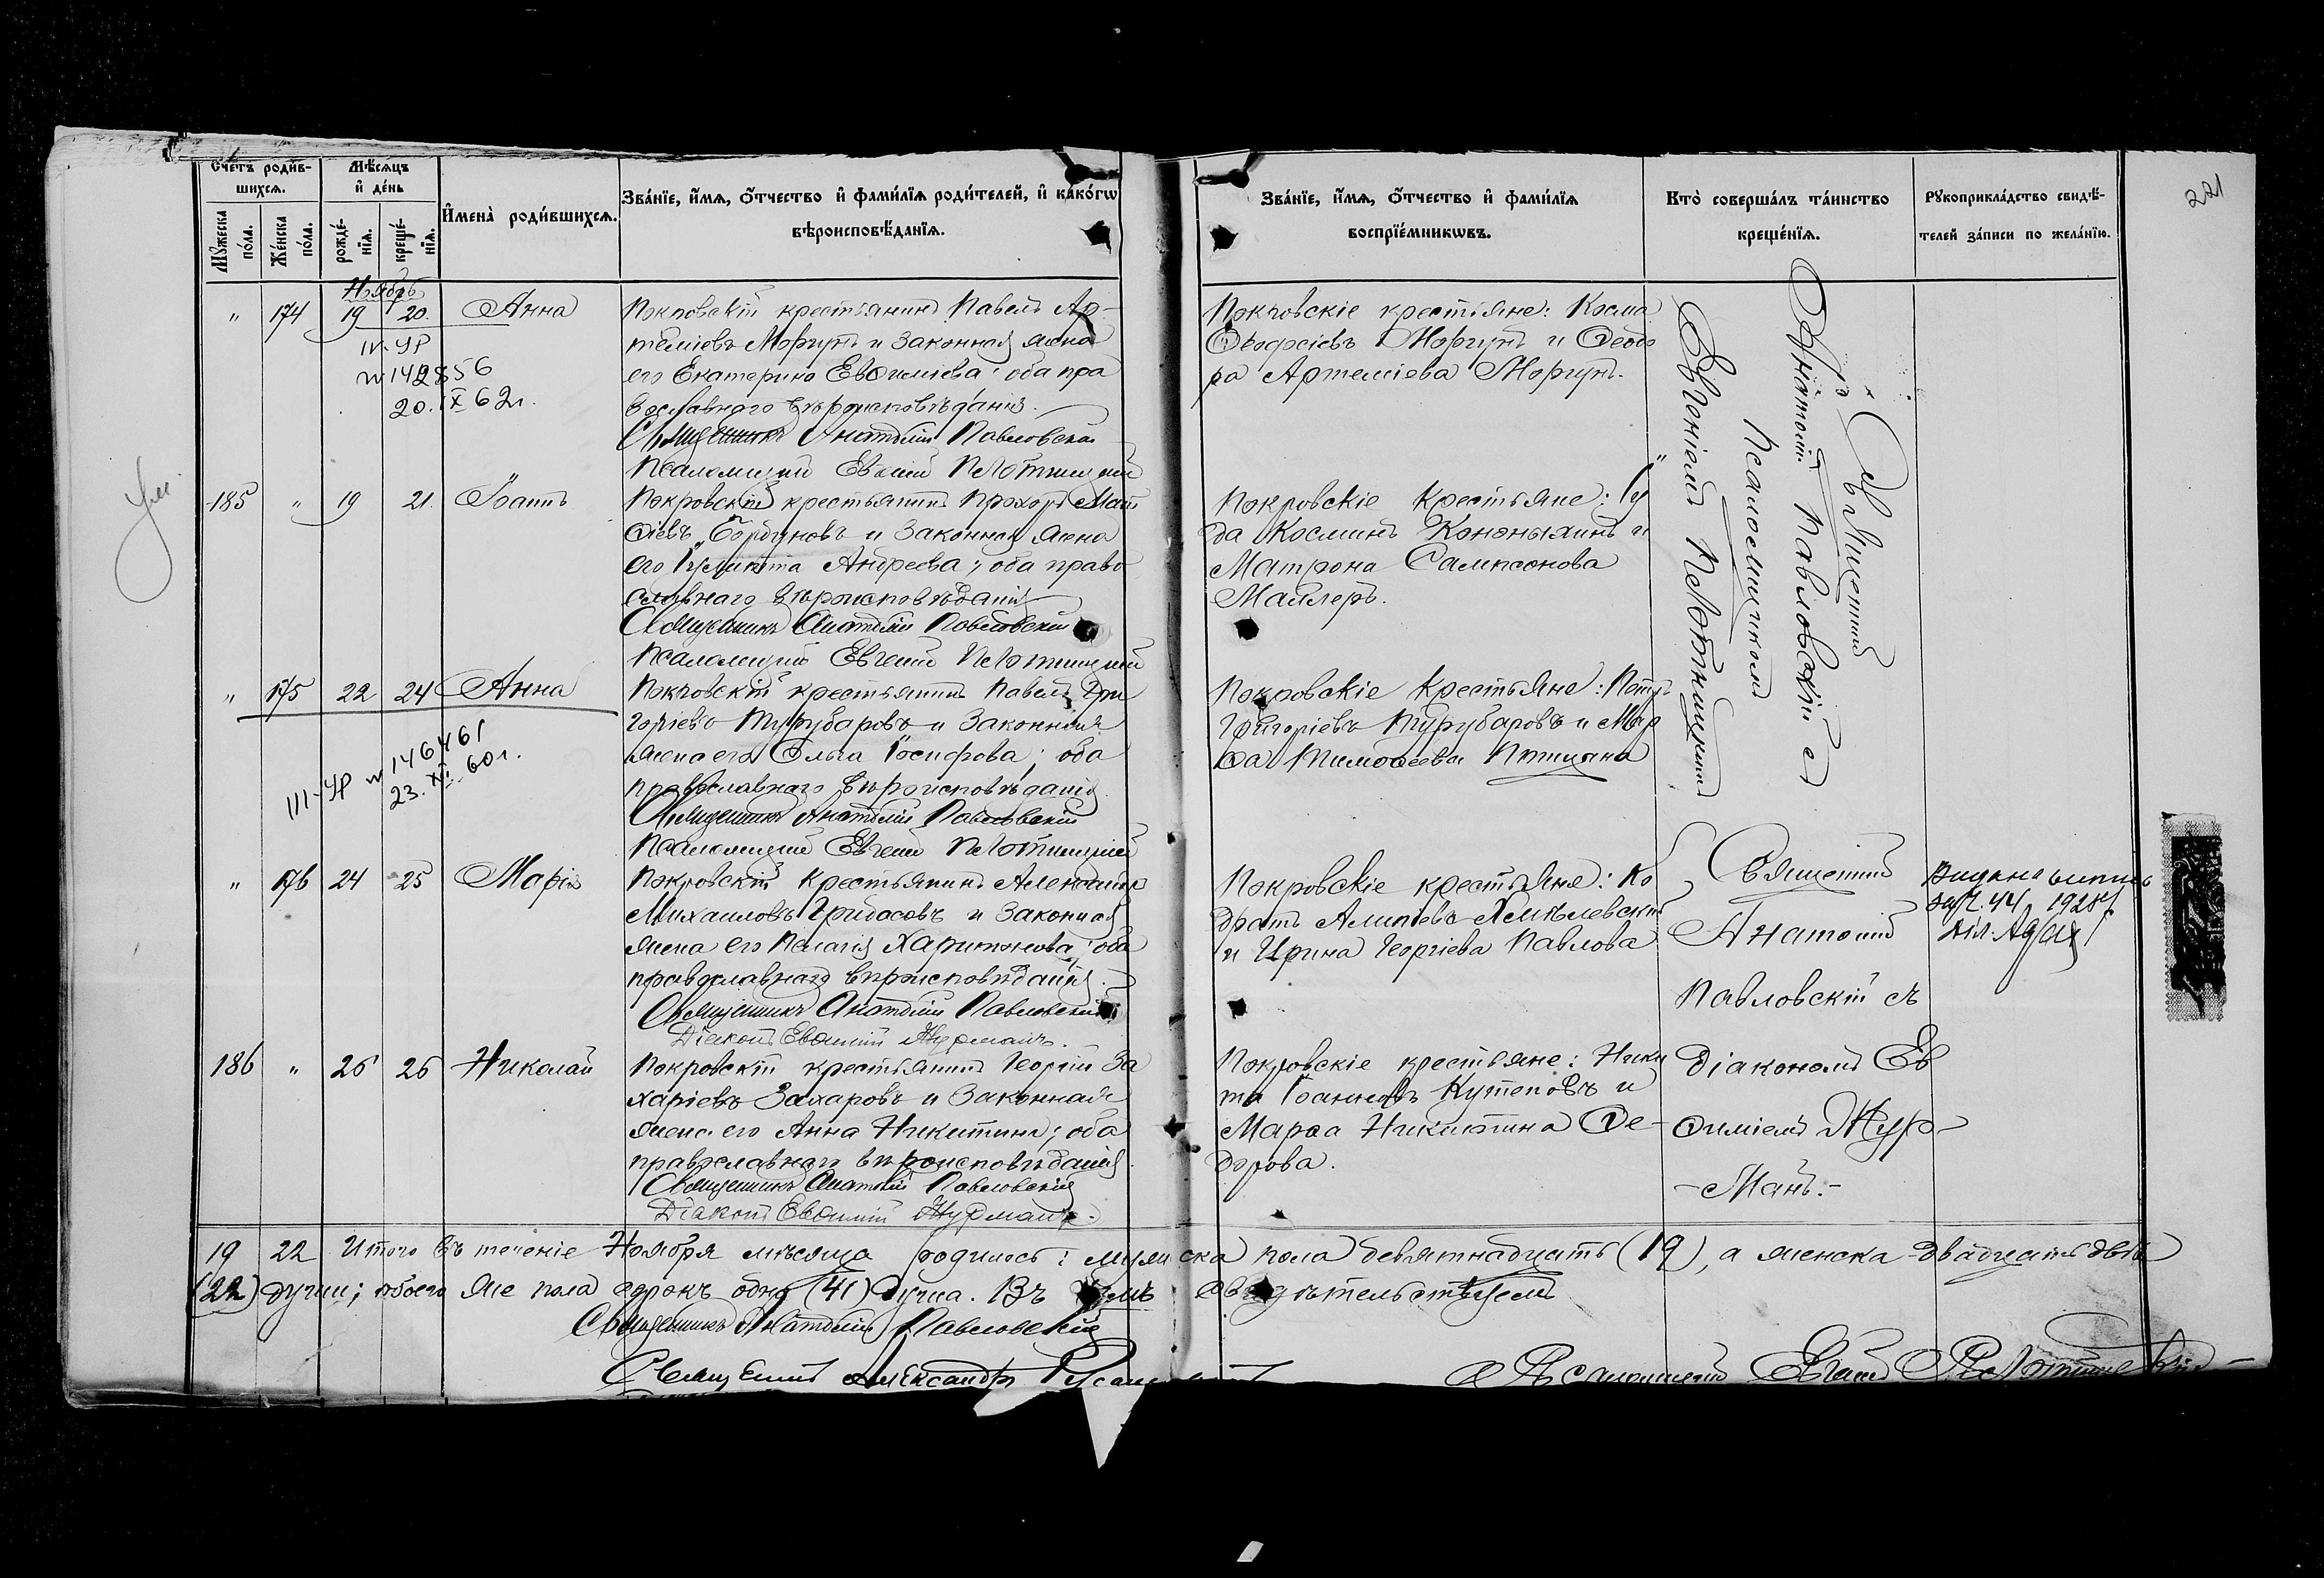 221
Счетъ родив-
шихся.
Мѣсяцъ
и день
Мужеска
пола.
Женска
пола.
рожде-
нія.
креще-
нія.
Имена родившихся.
Званіе, имя, отчество и фамилія родителей, и какогω
вѣроисповѣданія.
Званіе, имя, отчество и фамилія
воспріемникωвъ.
Кто совершалъ таинство
крещенія.
Рукоприкладство свидѣ-
телей записи по желанію.
Ноябрь
" 174 19 20. Анна
Покровскій крестьянинъ Павелъ Ар-
теміевъ Моргунъ и законная жена
его Екатерина Евѳиміева; оба пра
вославнаго вѣроисповѣданія.
Священникъ Анатолій Павловскій
Псаломщикъ Евгеній
IV-УР
№ 142856
20.IX 62г.
Покровскіе крестьяне: Косма
Моргунъ и Ѳеодо
ра Артеміева Моргунъ.
Священникъ
Анатолій Павловскій съ
Псаломщикомъ
Евгеніемъ
ум.
185 " 19 21. Іоаннъ
Покровскій крестьянинъ Прохоръ Мат
ѳіевъ и законная жена
его Іулитта Андреева; оба право
славнаго вѣроисповѣданія
Священникъ Анатолій Павловскій
Псаломщикъ Евгеній
Покровскіе крестьяне: Іу
да Косминъ и
Матрона Сампсонова
Майлеръ.
" 175 22 24 Анна
Покровскій крестьянинъ Павелъ Гри
горіевъ Турубаровъ и законная
жена его Ольга Іосифова; оба
православнаго вѣроисповѣданія.
Священникъ Анатолій Павловскій
Псаломщикъ Евгеній
III-УР № 146461
23.XII-60г.
Покровскіе крестьяне: Петръ
Григоріевъ Турубаровъ и Мар
ѳа Тимоѳеева
" 176 24 25 Марія
Покровскій крестьянинъ Александръ
Михаиловъ Грибасовъ и законная
жена его Пелагія Харитонова; оба
православнаго вѣроисповѣданія.
Священникъ Анатолій Павловскій
Діаконъ Евѳимій Журманъ.
Покровскіе крестьяне: Ко
дратъ Алипіевъ Хмѣлевскій
и Ирина Георгіева Павлова
Священникъ
Анатолій
Павловскій съ
Діакономъ Ев
ѳиміемъ Жур-
-манъ.-
1928
186 " 25 26 Николай
Покровскій крестьянинъ Георгій За
харіевъ Захаровъ и законная
жена его Анна Никитина; оба
православнаго вѣроисповѣданія.
Священникъ Анатолій Павловскій
Діаконъ Евѳимій Журманъ.
Покровскіе крестьяне: Ники
та Іоанновъ Кутеповъ и
Марѳа Никитина Ѳе-
дорова.
19 22 Итого въ теченіе Ноября мѣсяца родилось: мужеска пола девятнадцать (19), а женска двадцать двѣ
(22) души; обоего же пола сорокъ одна (41) душа. Въ чемъ свидѣтельствуемъ
Священникъ Анатолій Павловскій
Священникъ Александръ
Псаломщикъ Евгеній